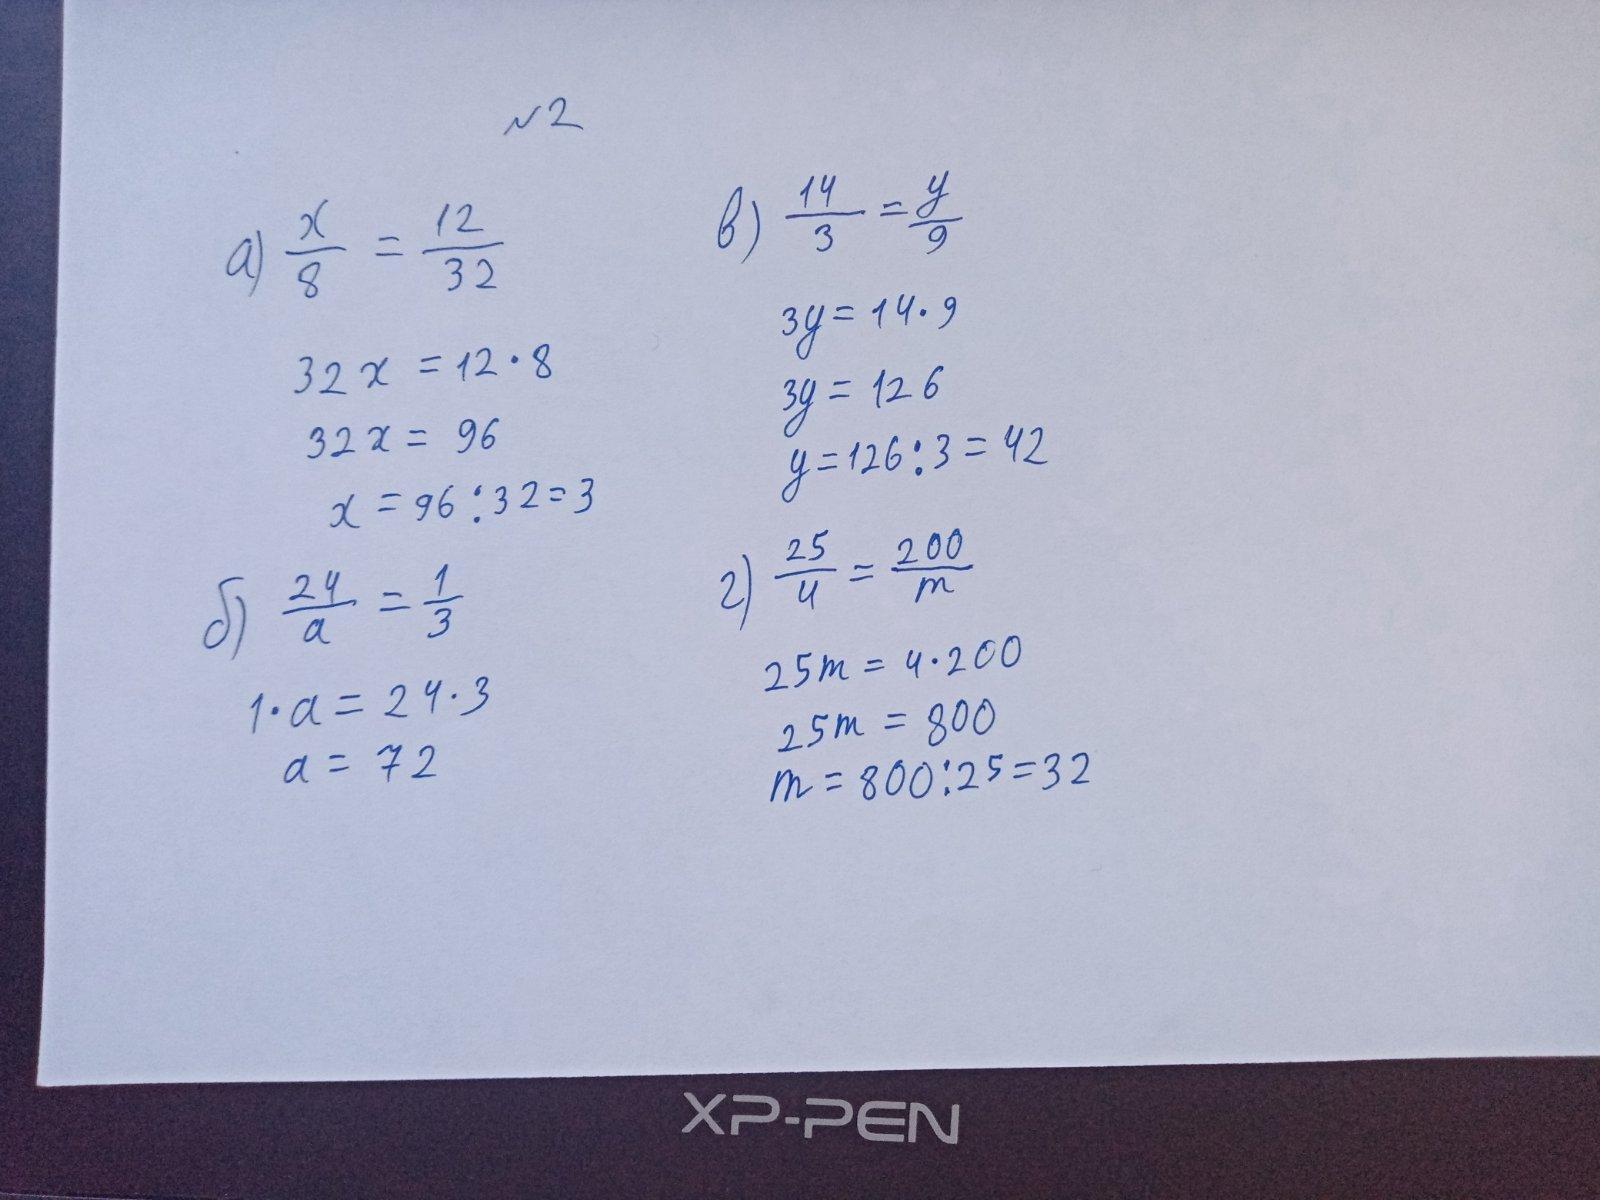 №2
а) x/8 = 12/32
32x = 12·8
32x = 96
x = 96:32=3
б) 24/a = 1/3
1·a = 24·3
a = 72
в) 14/3 = y/9
3y = 14·9
3y = 126
y = 126:3 = 42
г) 25/4 = 200/m
25m = 4·200
25m = 800
m = 800:25=32
XP-PEN